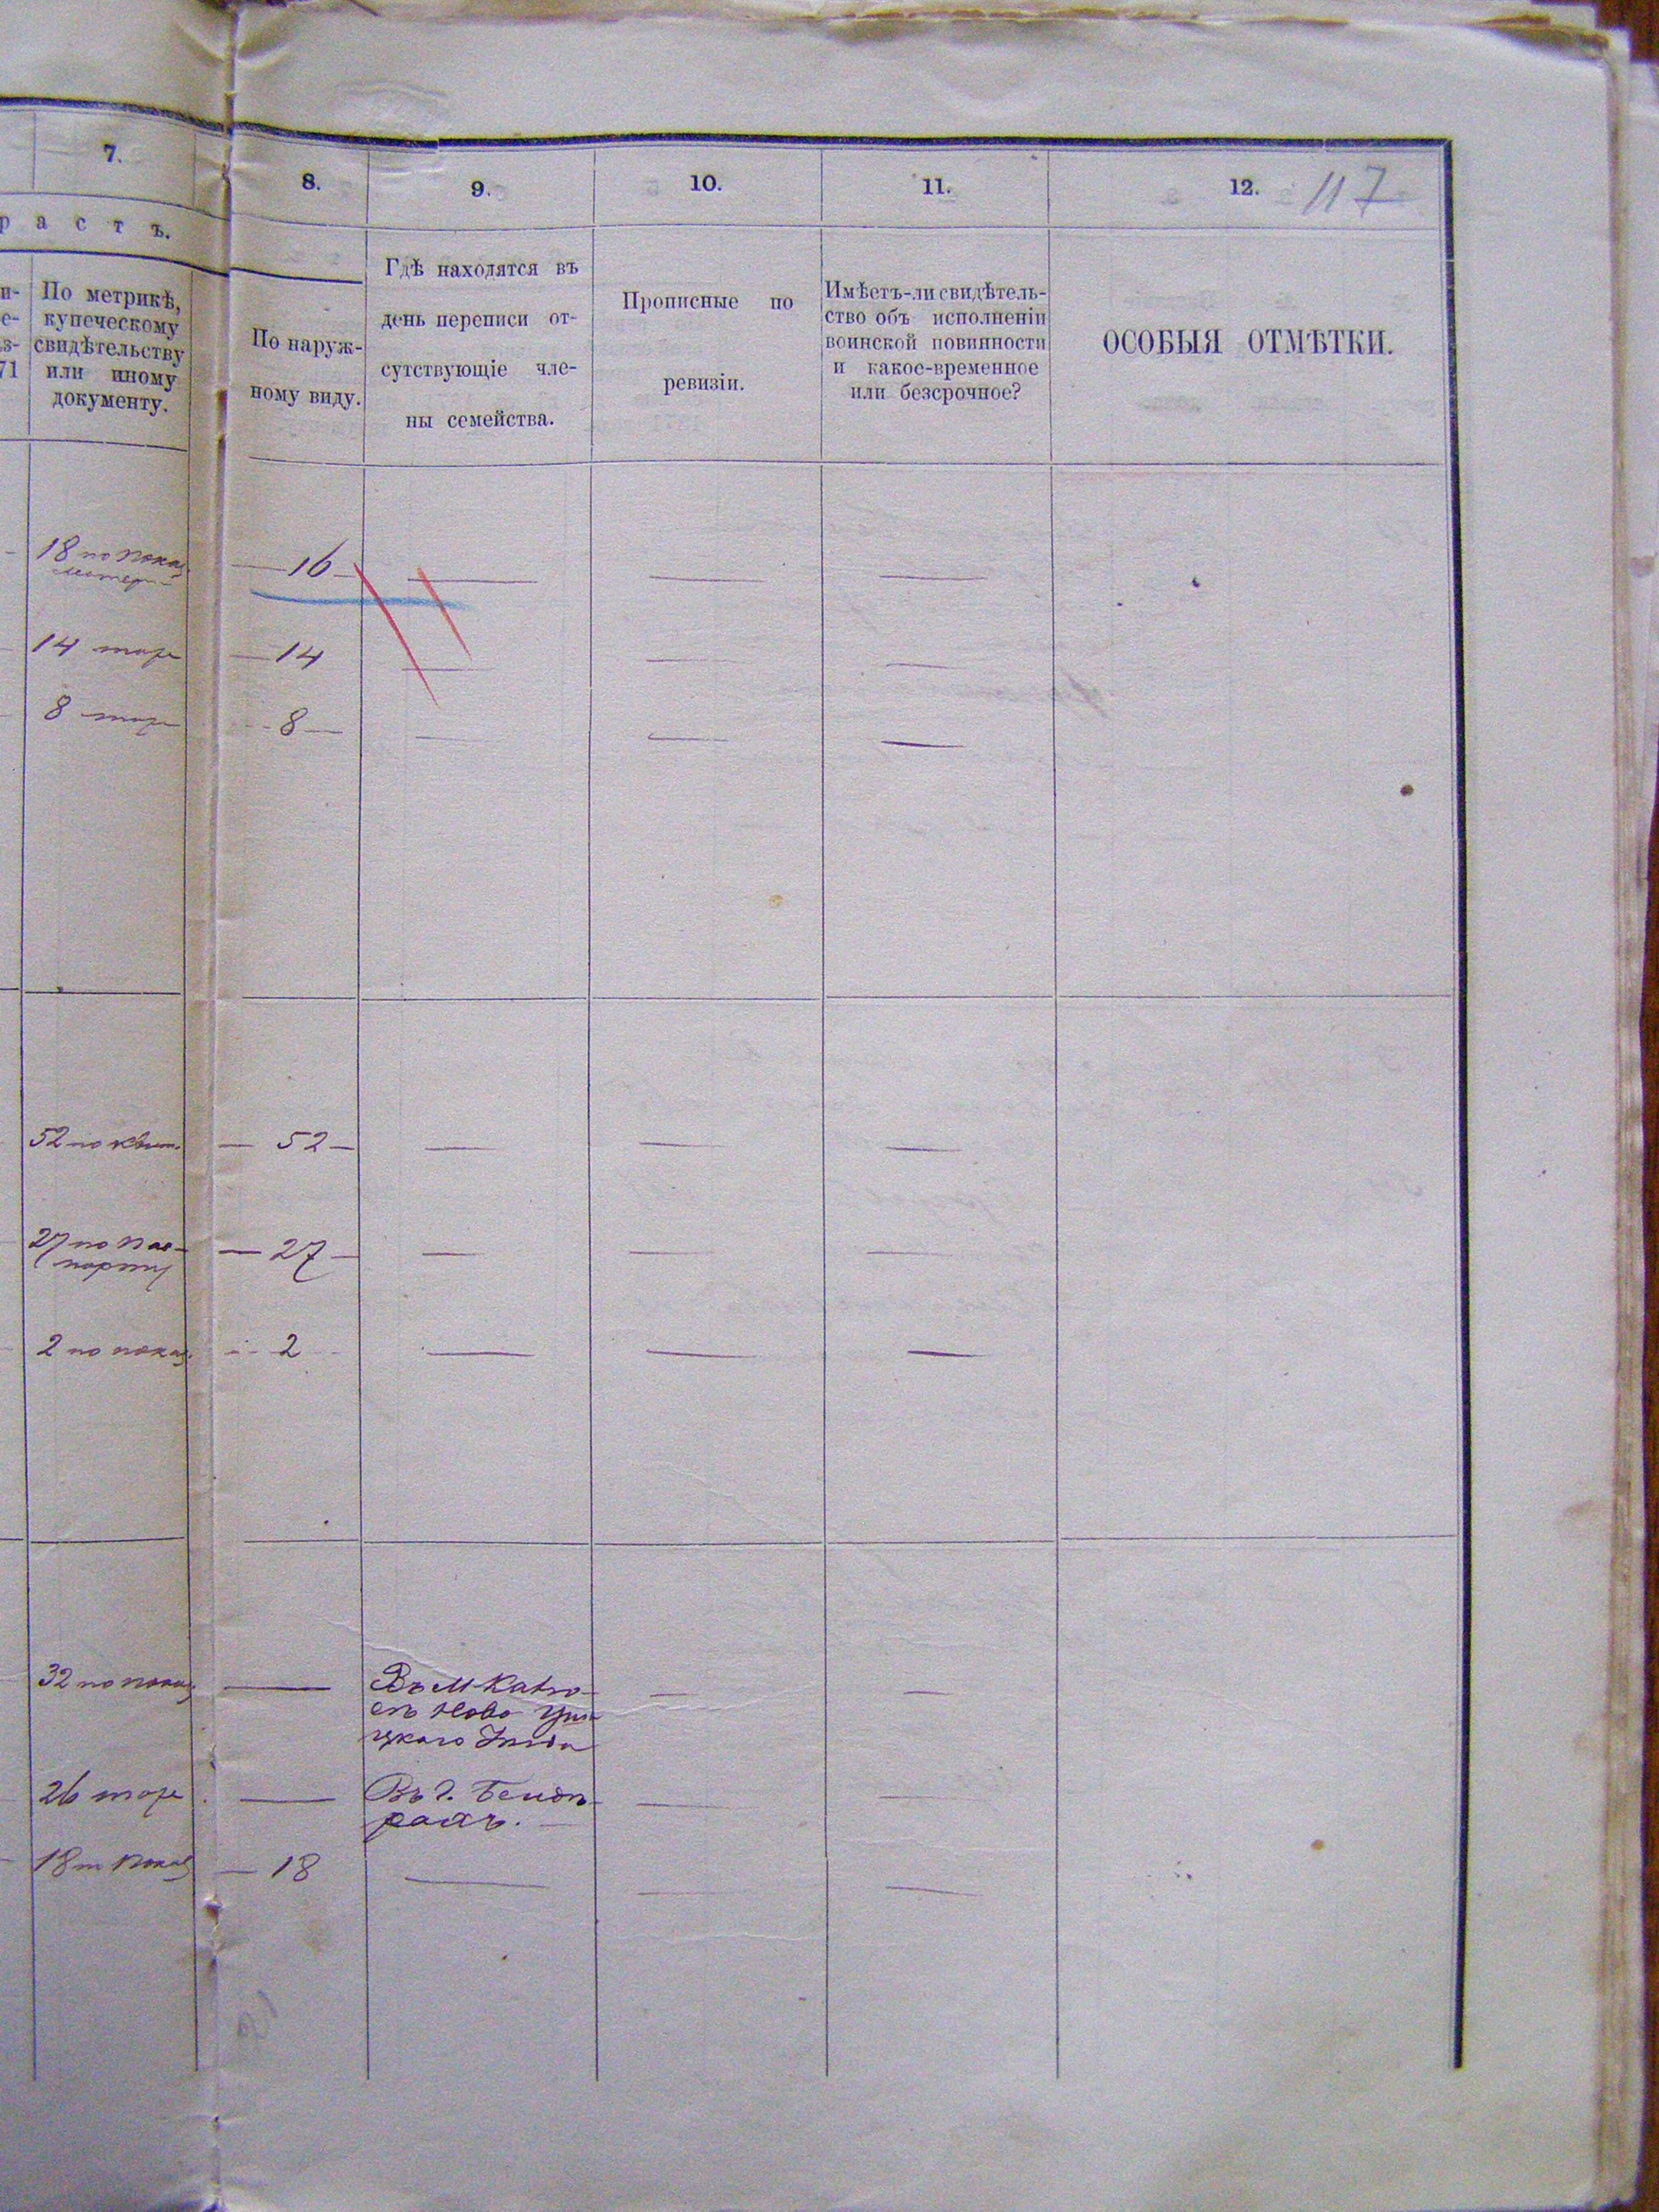 7.
8.
9.
10.
11.
12.
117
р а с т ъ.
По метрикѣ,
купеческому
свидѣтельству
или иному
документу.
71
По наруж-
ному виду.
Гдѣ находятся въ
день переписи от-
сутствующіе чле-
ны семейства.
Прописные по
ревизіи.
Имѣетъ-ли свидѣтель-
ство объ исполненіи
воинской повинности
и какое-временное
или безсрочное?
ОСОБЫЯ ОТМѢТКИ.
18 по показ
матери
— 16 —
14 тоже
— 14
8 тоже
— 8 —
52 по
— 52 —
27 по пас-
порту
— 27 —
2 по показ.
— 2
32 по показ
Въ М.
Ново
цкаго
26 тоже
Въ г. Бенде-
рахъ.
18 по показ
— 18